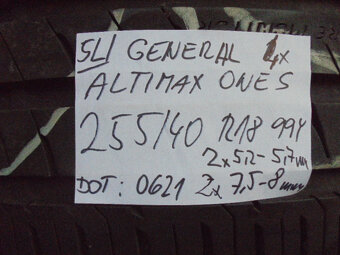 SL/ GENERAL 4x
ALTIMAX ONE S
255/40 R18 99Y
2x5,2-5,7mm
DOT: 0621 2x 7,5-8mm